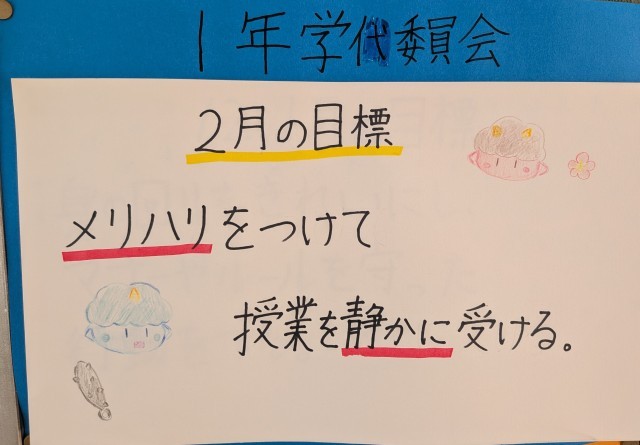 1年学代委員会
2月の目標
メリハリをつけて
授業を静かに受ける。